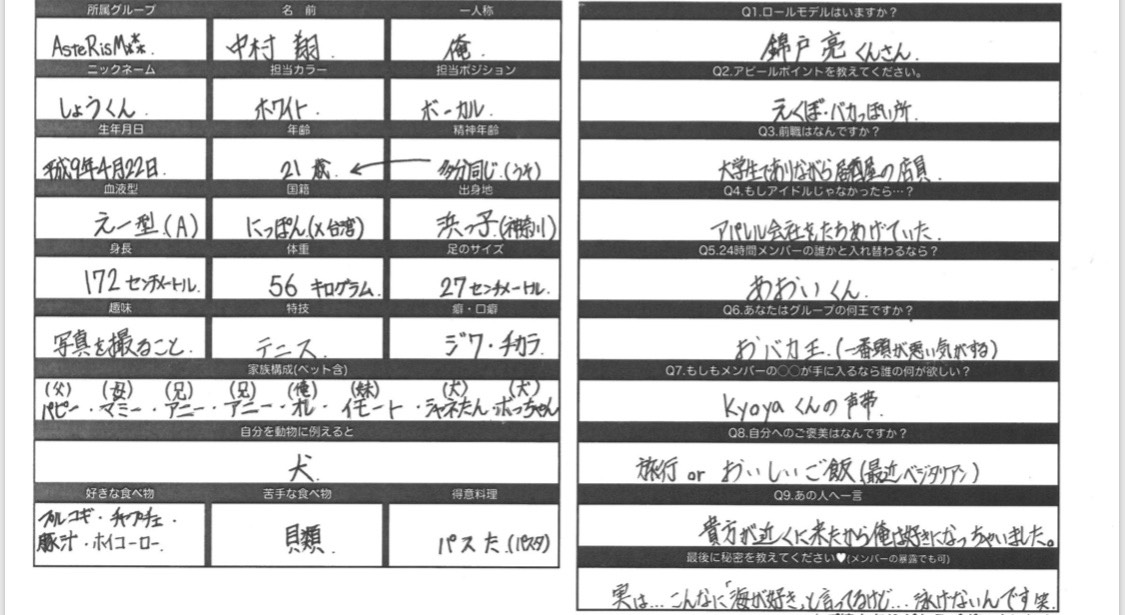 所属グループ 名 前 一人称
AsteRisM⁂. 中村 翔. 俺.
ニックネーム 担当カラー 担当ポジション
しょうくん. ホワイト. ボーカル.
生年月日 年齢 精神年齢
平成9年4月22日. 21歳. ← 多分同じ.(うそ)
血液型 国籍 出身地
えー型.(A) にっぽん.(×台湾) 浜っ子.(神奈川)
身長 体重 足のサイズ
172センチメートル. 56キログラム. 27センチメートル.
趣味 特技 癖・口癖
写真を撮ること. テニス. ジワ・チカラ.
家族構成(ペット含)
(父) (母) (兄) (兄) (俺) (妹) (犬) (犬)
パピー・マミー・アニー・アニー・オレ・イモート・シャネたん・ボっちゃん
自分を動物に例えると
犬.
好きな食べ物 苦手な食べ物 得意料理
プルコギ・チャプチェ・
豚汁・ホイコーロー. 貝類. パスた.(パスタ)
Q1.ロールモデルはいますか？
錦戸 亮くんさん.
Q2.アピールポイントを教えてください。
えくぼ・バカっぽい所.
Q3.前職はなんですか？
大学生でありながら居酒屋の店員.
Q4.もしアイドルじゃなかったら…？
アパレル会社をたちあげていた.
Q5.24時間メンバーの誰かと入れ替わるなら？
あおいくん.
Q6.あなたはグループの何王ですか？
おバカ王.(一番頭が悪い気がする)
Q7.もしもメンバーの◯◯が手に入るなら誰の何が欲しい？
Kyoyaくんの声帯.
Q8.自分へのご褒美はなんですか？
旅行 or おいしいご飯(最近ベジタリアン)
Q9.あの人へ一言
貴方が近くに来たから俺は好きになっちゃいました。
最後に秘密を教えてください♥(メンバーの暴露でも可)
実は…こんなに「海が好き」と言ってるけど…泳げないんです笑.